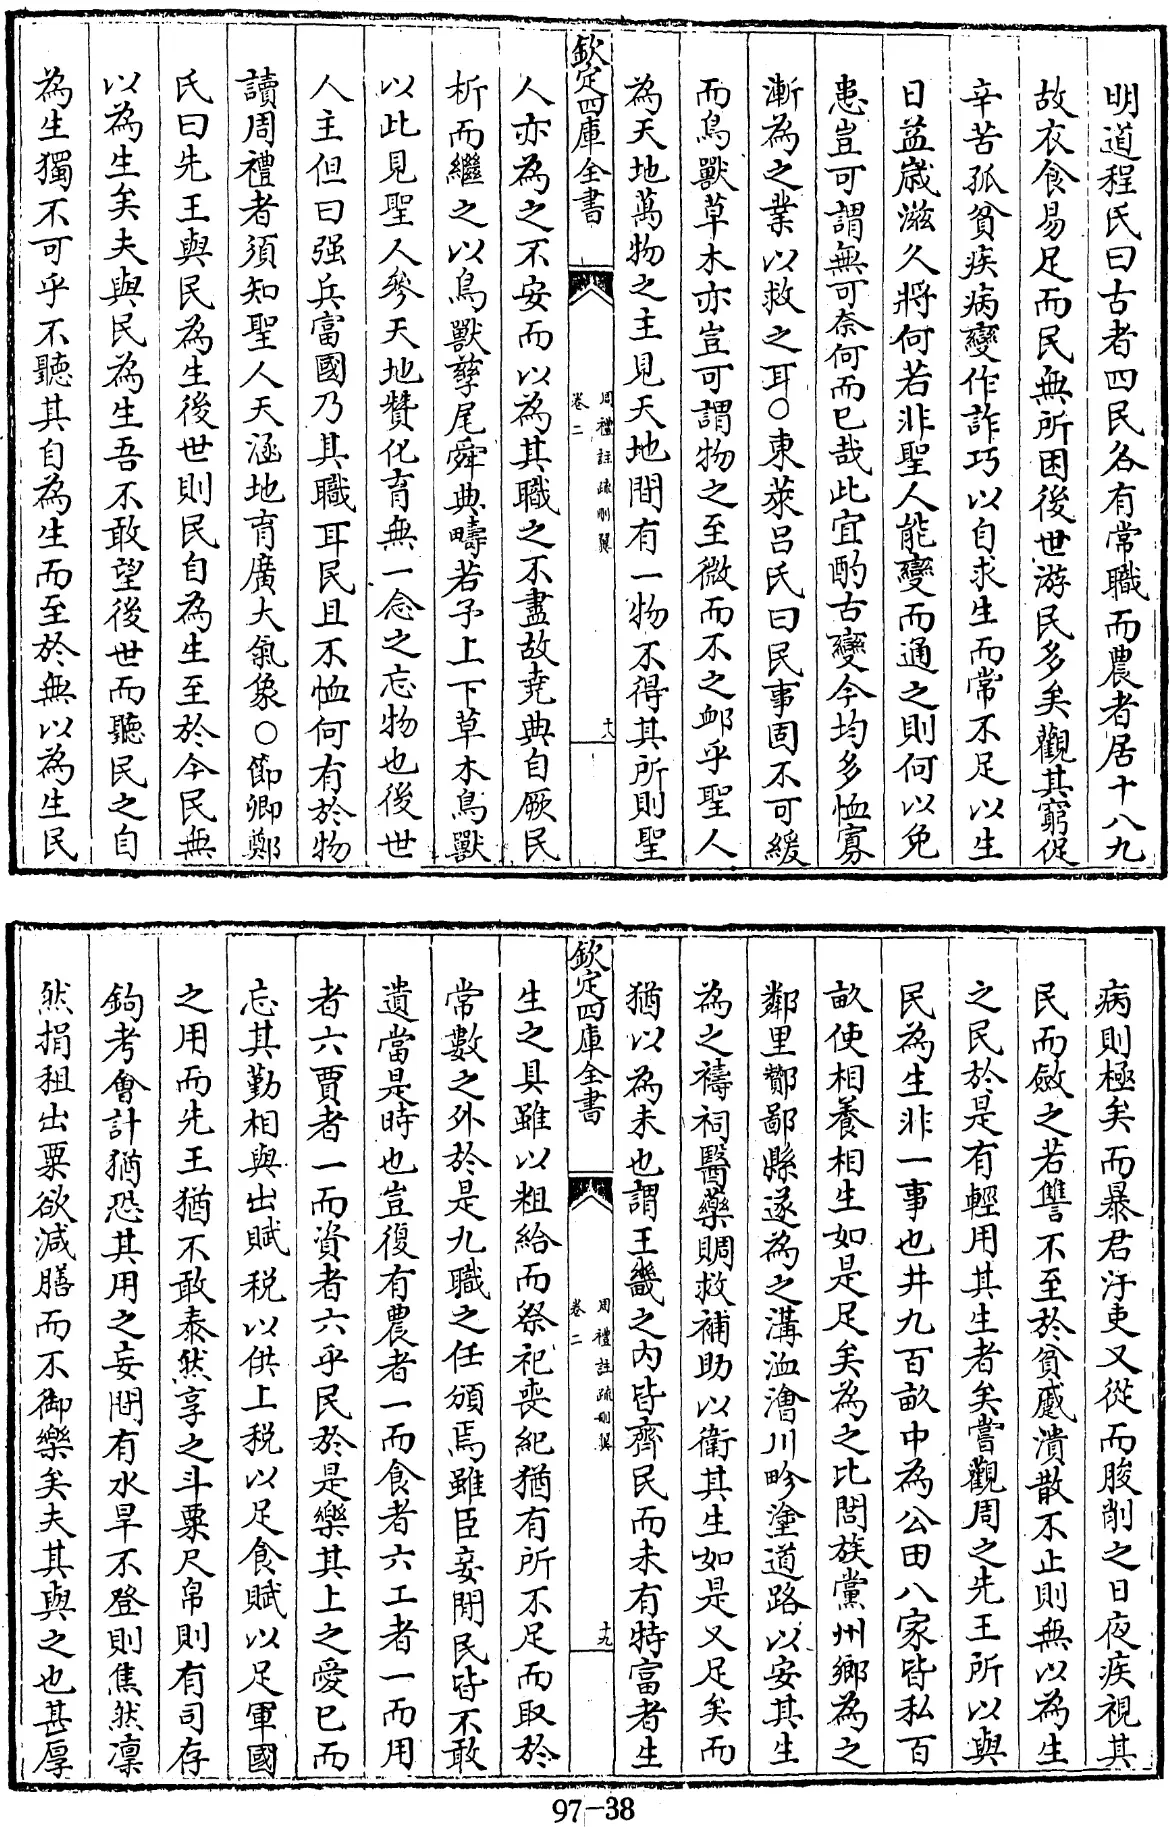 明道程氏曰古者四民各有常職而農者居十八九
故衣食易足而民無所困後世游民多矣觀其窮促
辛苦孤貧疾病變作詐巧以自求生而常不足以生
日益歲滋久將何若非聖人能變而通之則何以免
患豈可謂無可奈何而已哉此宜酌古變今均多恤寡
漸為之業以救之耳○東萊呂氏曰民事固不可緩
而鳥獸草木亦豈可謂物之至微而不之卹乎聖人
為天地萬物之主見天地間有一物不得其所則聖
欽定四庫全書
周禮註疏刪翼
卷二
十八
人亦為之不安而以為其職之不盡故堯典自厥民
析而繼之以鳥獸孳尾舜典疇若予上下草木鳥獸
以此見聖人參天地贊化育無一念之忘物也後世
人主但曰强兵富國乃其職耳民且不恤何有於物
讀周禮者須知聖人天涵地育廣大氣象○節卿鄭
氏曰先王與民為生後世則民自為生至於今民無
以為生矣夫與民為生吾不敢望後世而聽民之自
為生獨不可乎不聽其自為生而至於無以為生民
病則極矣而暴君汙吏又從而朘削之日夜疾視其
民而斂之若讐不至於貧慼潰散不止則無以為生
之民於是有輕用其生者矣嘗觀周之先王所以與
民為生非一事也井九百畝中為公田八家皆私百
畝使相養相生如是足矣為之比閭族黨州鄉為之
鄰里酇鄙縣遂為之溝洫澮川畛塗道路以安其生
為之禱祠醫藥賙救補助以衛其生如是又足矣而
猶以為未也謂王畿之內皆齊民而未有特富者生
欽定四庫全書
周禮註疏刪翼
卷二
十九
生之具雖以粗給而祭祀喪紀猶有所不足而取於
常數之外於是九職之任頒焉雖臣妾閒民皆不敢
遺當是時也豈復有農者一而食者六工者一而用
者六賈者一而資者六乎民於是樂其上之愛已而
忘其勤相與出賦税以供上税以足食賦以足軍國
之用而先王猶不敢泰然享之斗粟尺帛則有司存
鉤考會計猶恐其用之妄間有水旱不登則焦然凛
然捐租出粟欲減膳而不御樂矣夫其與之也甚厚
97-38